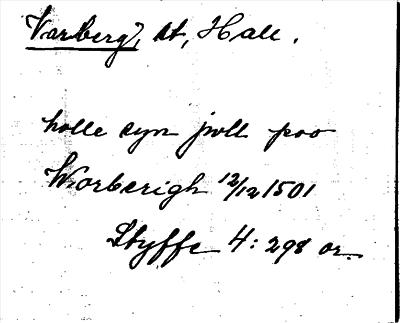 Varberg, st, Hall.
holle syn jwll poo
Warberigh 12/12 1501
Styffe 4: 298 or.